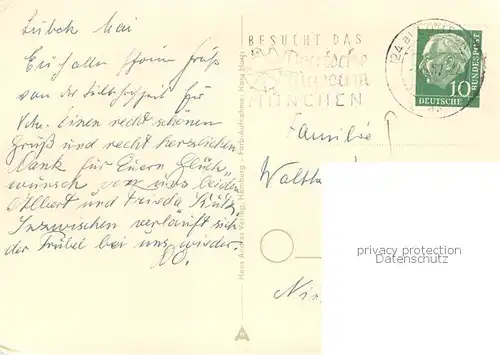 Lübeck Mai
Euch allen schönen Gruß
von der Silberhochzeit für
Einen recht schönen
Gruß und recht herzlichen
Dank für Euern Glück-
wunsch von uns beiden
Albert und Frieda
Inzwischen verläuft sich
der Trubel bei uns wieder.
Hans Andres Verlag, Hamburg - Farb-Aufnahme: Hans Hartz
BESUCHT DAS
Deutsche
Museum
MÜNCHEN
(24a)
10
DEUTSCHE
BUNDESPOST
Familie
privacy protection
Datenschutz